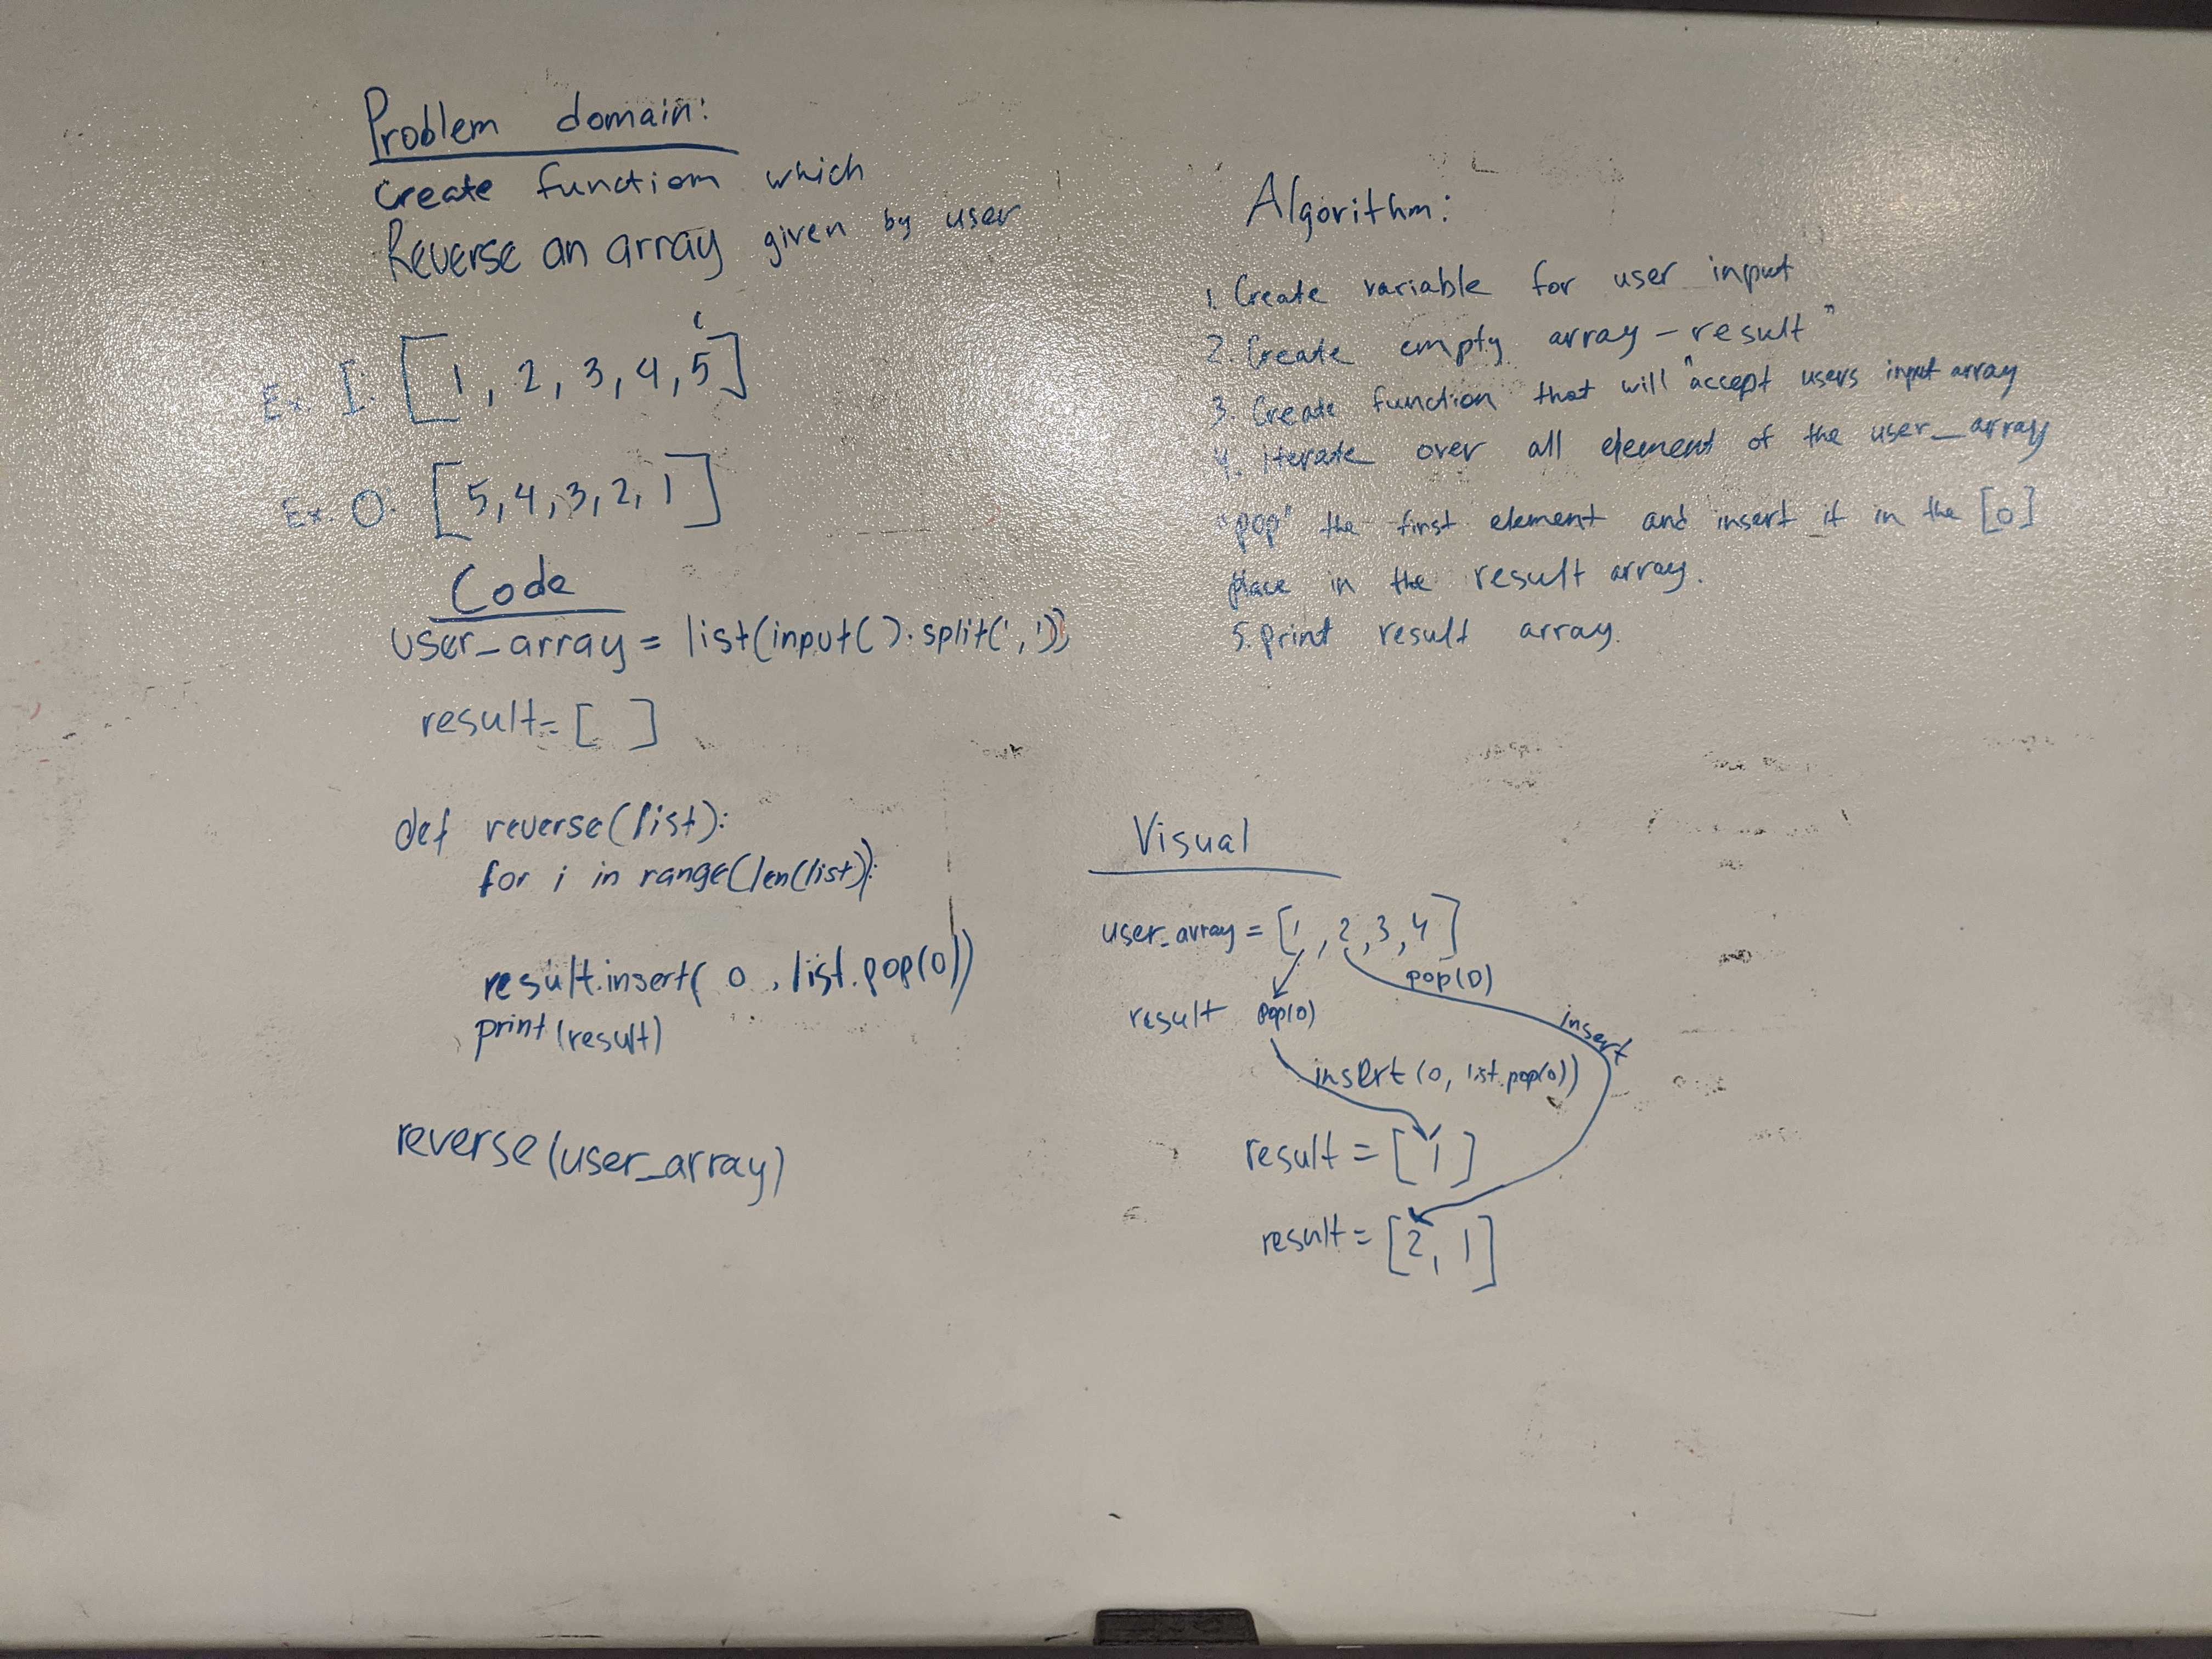 Problem domain:
Create function which
Reverse an array given by user
Ex. I: [1, 2, 3, 4, 5]
Ex. O: [5, 4, 3, 2, 1]
Code
user_array = list(input().split(','))
result = [ ]
def reverse(list):
for i in range(len(list)):
result.insert( 0 , list.pop(0))
print(result)
reverse(user_array)
Algorithm:
1. Create variable for user input
2. Create empty array - result"
3. Create function that will "accept users input array
4. iterate over all element of the user_array
"pop" the first element and insert it in the [0]
place in the result array.
5. print result array.
Visual
user_array = [1, 2, 3, 4]
pop(0)
result pop(0)
insert
insert(0, list.pop(0))
result = [1]
result = [2, 1]